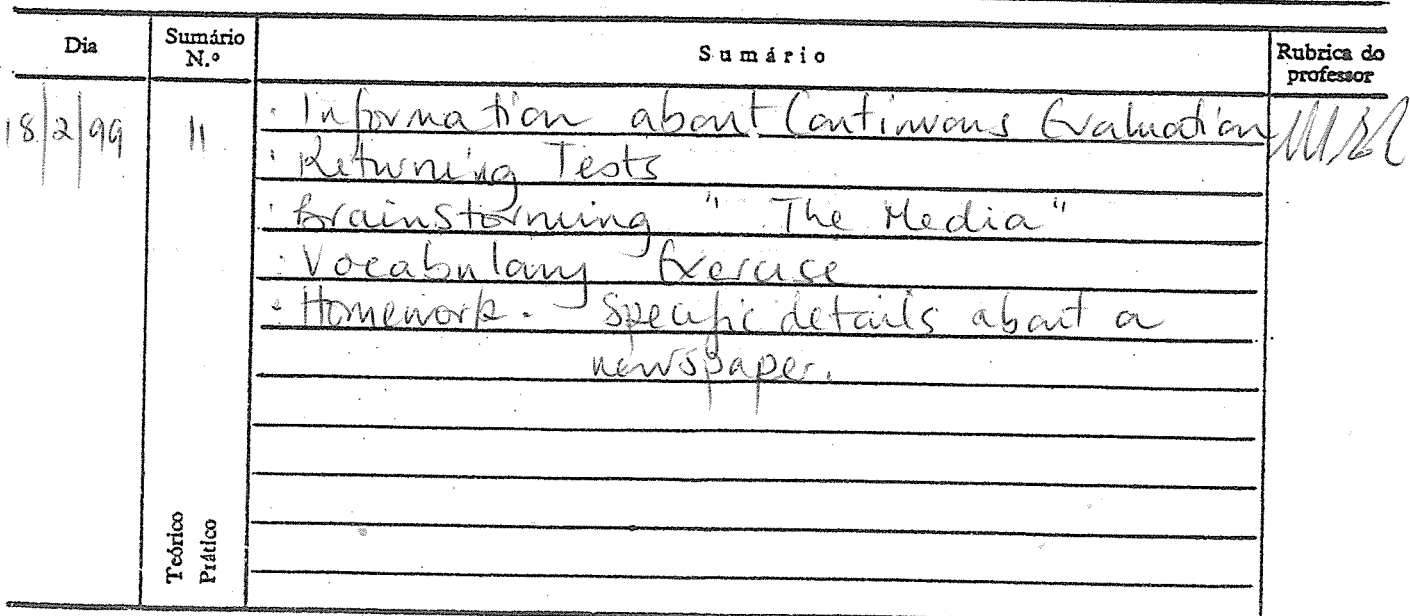 Dia
Sumário
N.º
Sumário
Rubrica do
professor
18/2/99
11
· Information about Continuous Evaluation
· Returning Tests
· Brainstorming " The Media"
· Vocabulary Exercise
· Homework. - Specific details about a
newspaper.
Teórico
Prático